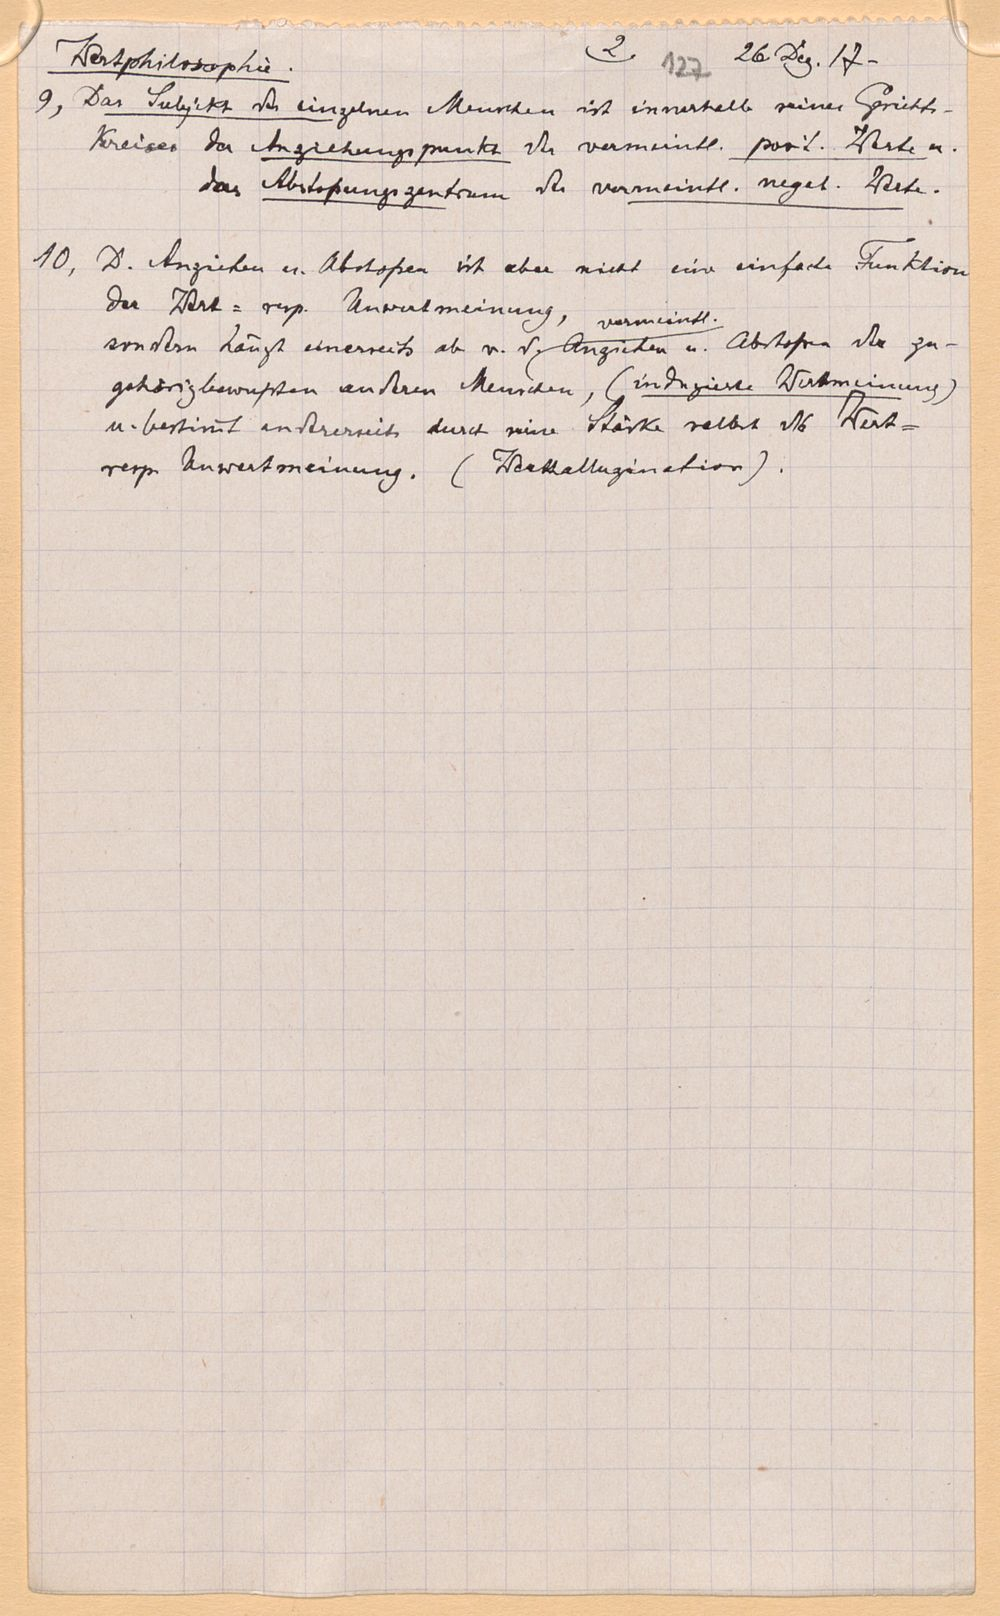 Wertphilosophie. 2. 127 26 Dez. 17-
9, Das Subjekt des einzelnen Menschen ist innerhalb seines Gesichts-
Kreises der Anziehungspunkt der vermeintl. posit. Werte u.
das Abstoßungszentrum der vermeintl. negat. Werte.
10, D. Anziehen u. Abstoßen ist aber nicht eine einfache Funktion
der Wert= resp. Unwertmeinung,
vermeintl.
sondern hängt einerseits ab v. d. Anziehen u. Abstoßen der zu-
gehörigbewußten anderen Menschen, (induzierte Wertmeinung)
u. bestimt andererseits durch seine Stärke selbst die Wert=
resp Unwertmeinung. (Werthallugination).